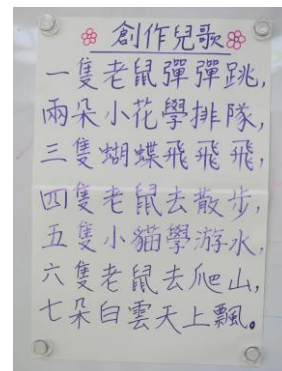 創作兒歌
一隻老鼠彈彈跳,
兩朵小花學排隊,
三隻蝴蝶飛飛飛,
四隻老鼠去散步,
五隻小貓學游水,
六隻老鼠去爬山,
七朵白雲天上飄。